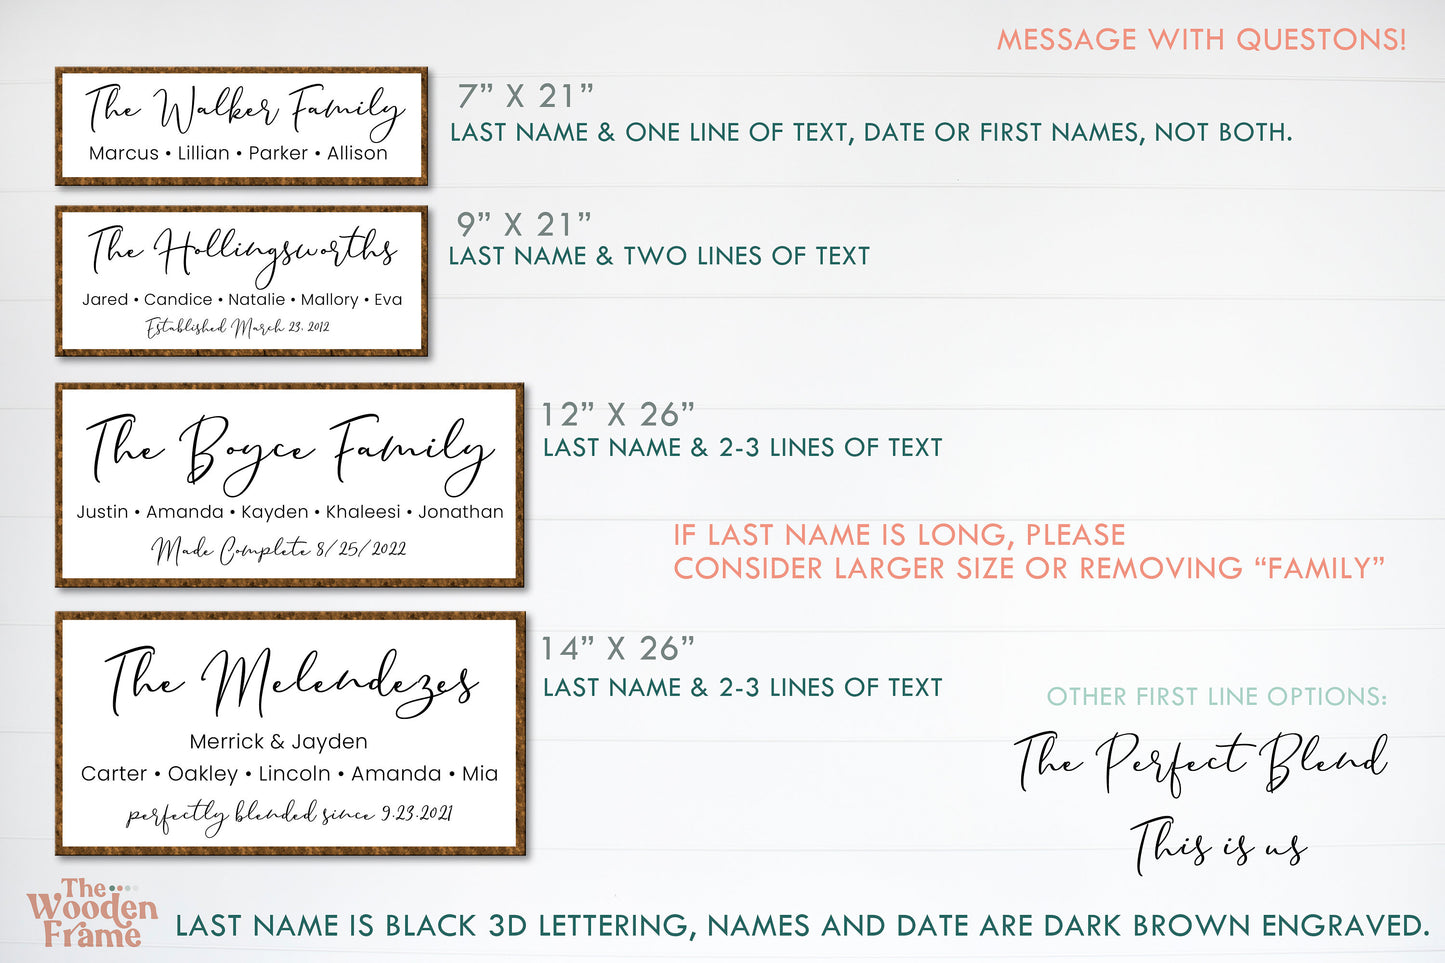 MESSAGE WITH QUESTONS!
The Walker Family
Marcus • Lillian • Parker • Allison
7” X 21”
LAST NAME & ONE LINE OF TEXT, DATE OR FIRST NAMES, NOT BOTH.
The Hollingsworths
Jared • Candice • Natalie • Mallory • Eva
Established March 23, 2012
9” X 21”
LAST NAME & TWO LINES OF TEXT
The Boyce Family
Justin • Amanda • Kayden • Khaleesi • Jonathan
Made Complete 8/25/2022
12” X 26”
LAST NAME & 2-3 LINES OF TEXT
IF LAST NAME IS LONG, PLEASE
CONSIDER LARGER SIZE OR REMOVING “FAMILY”
The Melendezes
Merrick & Jayden
Carter • Oakley • Lincoln • Amanda • Mia
perfectly blended since 9.23.2021
14” X 26”
LAST NAME & 2-3 LINES OF TEXT
OTHER FIRST LINE OPTIONS:
The Perfect Blend
This is us
The
Wooden
Frame
LAST NAME IS BLACK 3D LETTERING, NAMES AND DATE ARE DARK BROWN ENGRAVED.